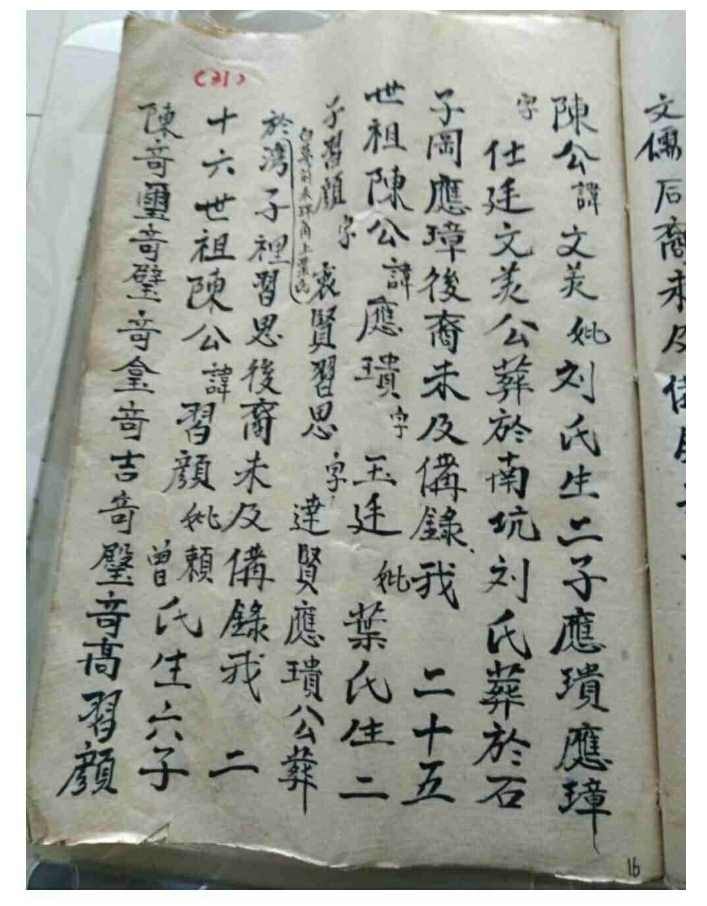 文儒后裔未及備
陳公諱文芺妣刘氏生二子應璝應璋
字仕廷文芺公葬於南坑刘氏葬於石
子岡應璋後裔未及備錄我二十五
世祖陳公諱應璝字玉廷妣葉氏生二
子習顏字袁賢習思字達賢應璝公葬
於灣子裡習思後裔未及備錄我二
十六世祖陳公諱習顏妣賴曾氏生六子
陳奇璽奇璧奇奇吉奇璧奇高習顏
(31)
16